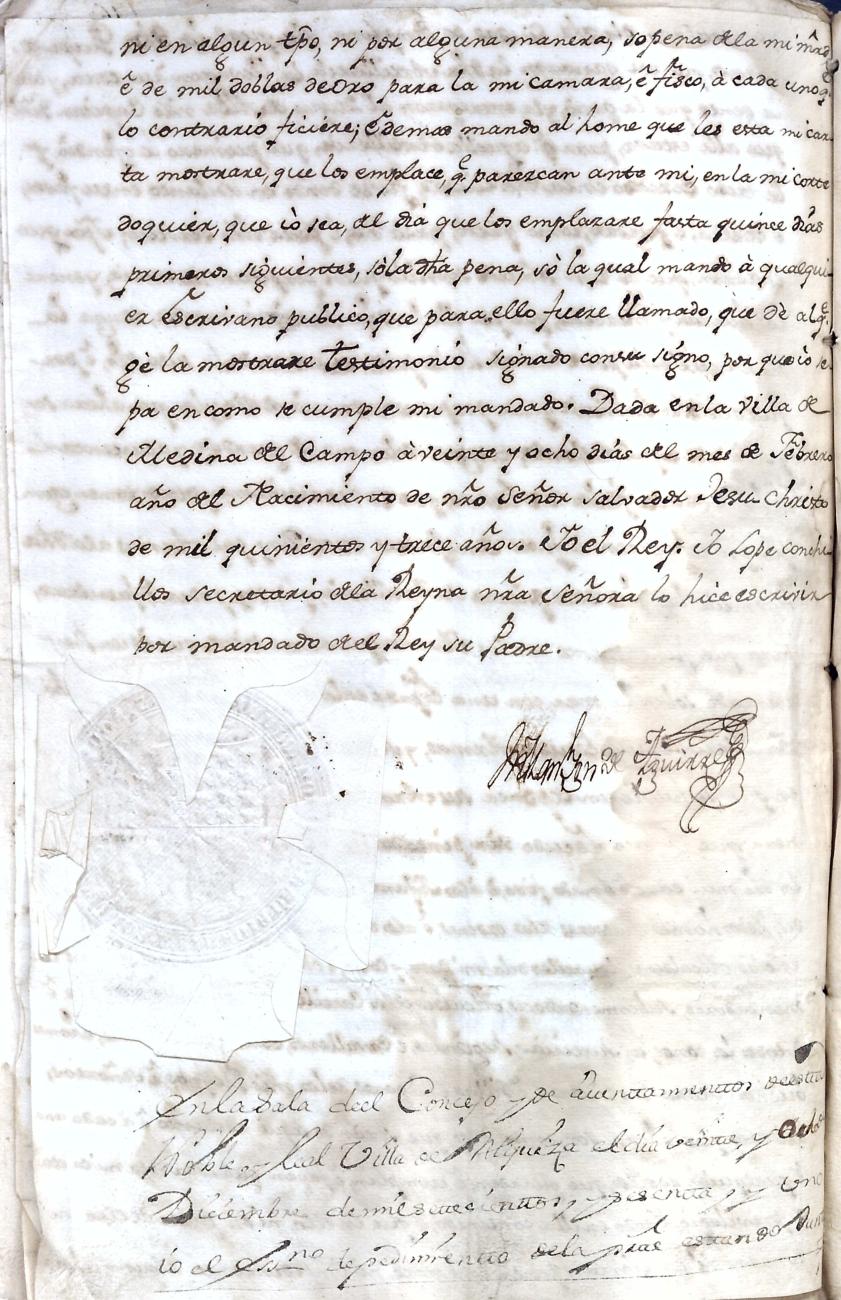 ni en algun tp̃o, ni por alguna manera, so pena dela mi mr̃d
ẽ de mil doblas de oro para la mi camara, ẽ fisco, à cada uno q.
lo contrario ficiere; ẽ demas mando al home que les esta mi car-
ta mostrare, que los emplace, q.e parezcan ante mi, en la mi corte
doquier, que iò sea, del diá que los emplazare fasta quince diás
primeros siguientes, sò la dh̃a pena, sò la qual mando à qualqui-
er Escrivano publico, que para ello fuere llamado, que dè al q.e
gè la mostrare testimonio signado con su signo, por que iò se-
pa en como se cumple mi mandado. Dada en la villa de
Medina del Campo à veinte y ocho diás del mes de Febrero
año del Nacimiento de nr̃o Señor salvador Jesu christo
de mil quinientos y trece años. Yo el Rey. Yo Lope conchi-
llos secretario dela Reyna nr̃a señora lo hice escrivir
por mandado del Rey su Padre.
de Aguirre
En la Sala deel Concejo y de Aiuntamienttos de estta
Noble y Leal Villa de el dia veinte, y Ocho
Diciembre de mil settecienttos, y sesentta, y uno
io el Ess.no de pedimientto de la partte estando